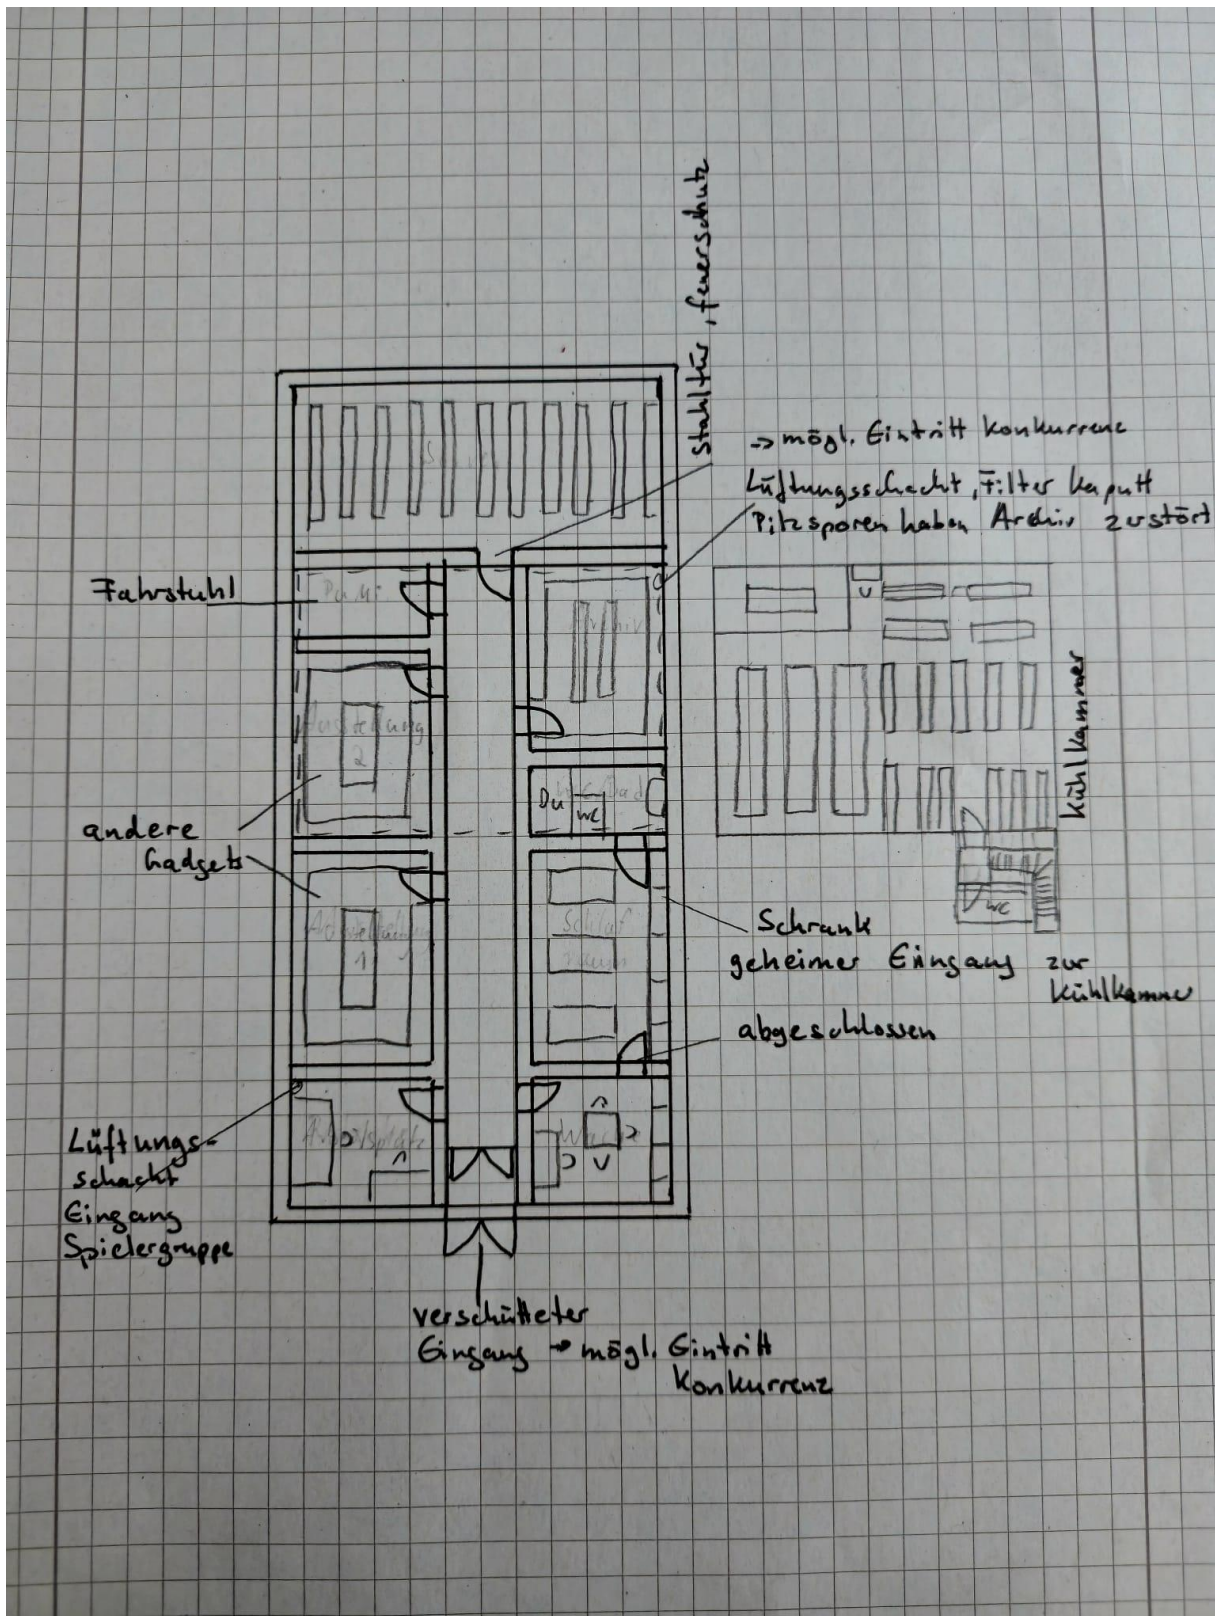 Stahltür, feuerschutz
-> mögl. Eintritt Konkurrenz
Lüftungsschacht, Filter kaputt
Pilzsporen haben Archiv zerstört
Fahrstuhl
Archiv
Ausstellung
2
Kühlkammer
Du
WC
WC/Bad
andere
Gadgets
Ausstellung
1
Schlaf
raum
WC
Schrank
geheimer Eingang zur
Kühlkammer
abgeschlossen
Arbeitsplätze
Wache
Lüftungs-
schacht
Eingang
Spielergruppe
verschütteter
Eingang -> mögl. Eintritt
Konkurrenz